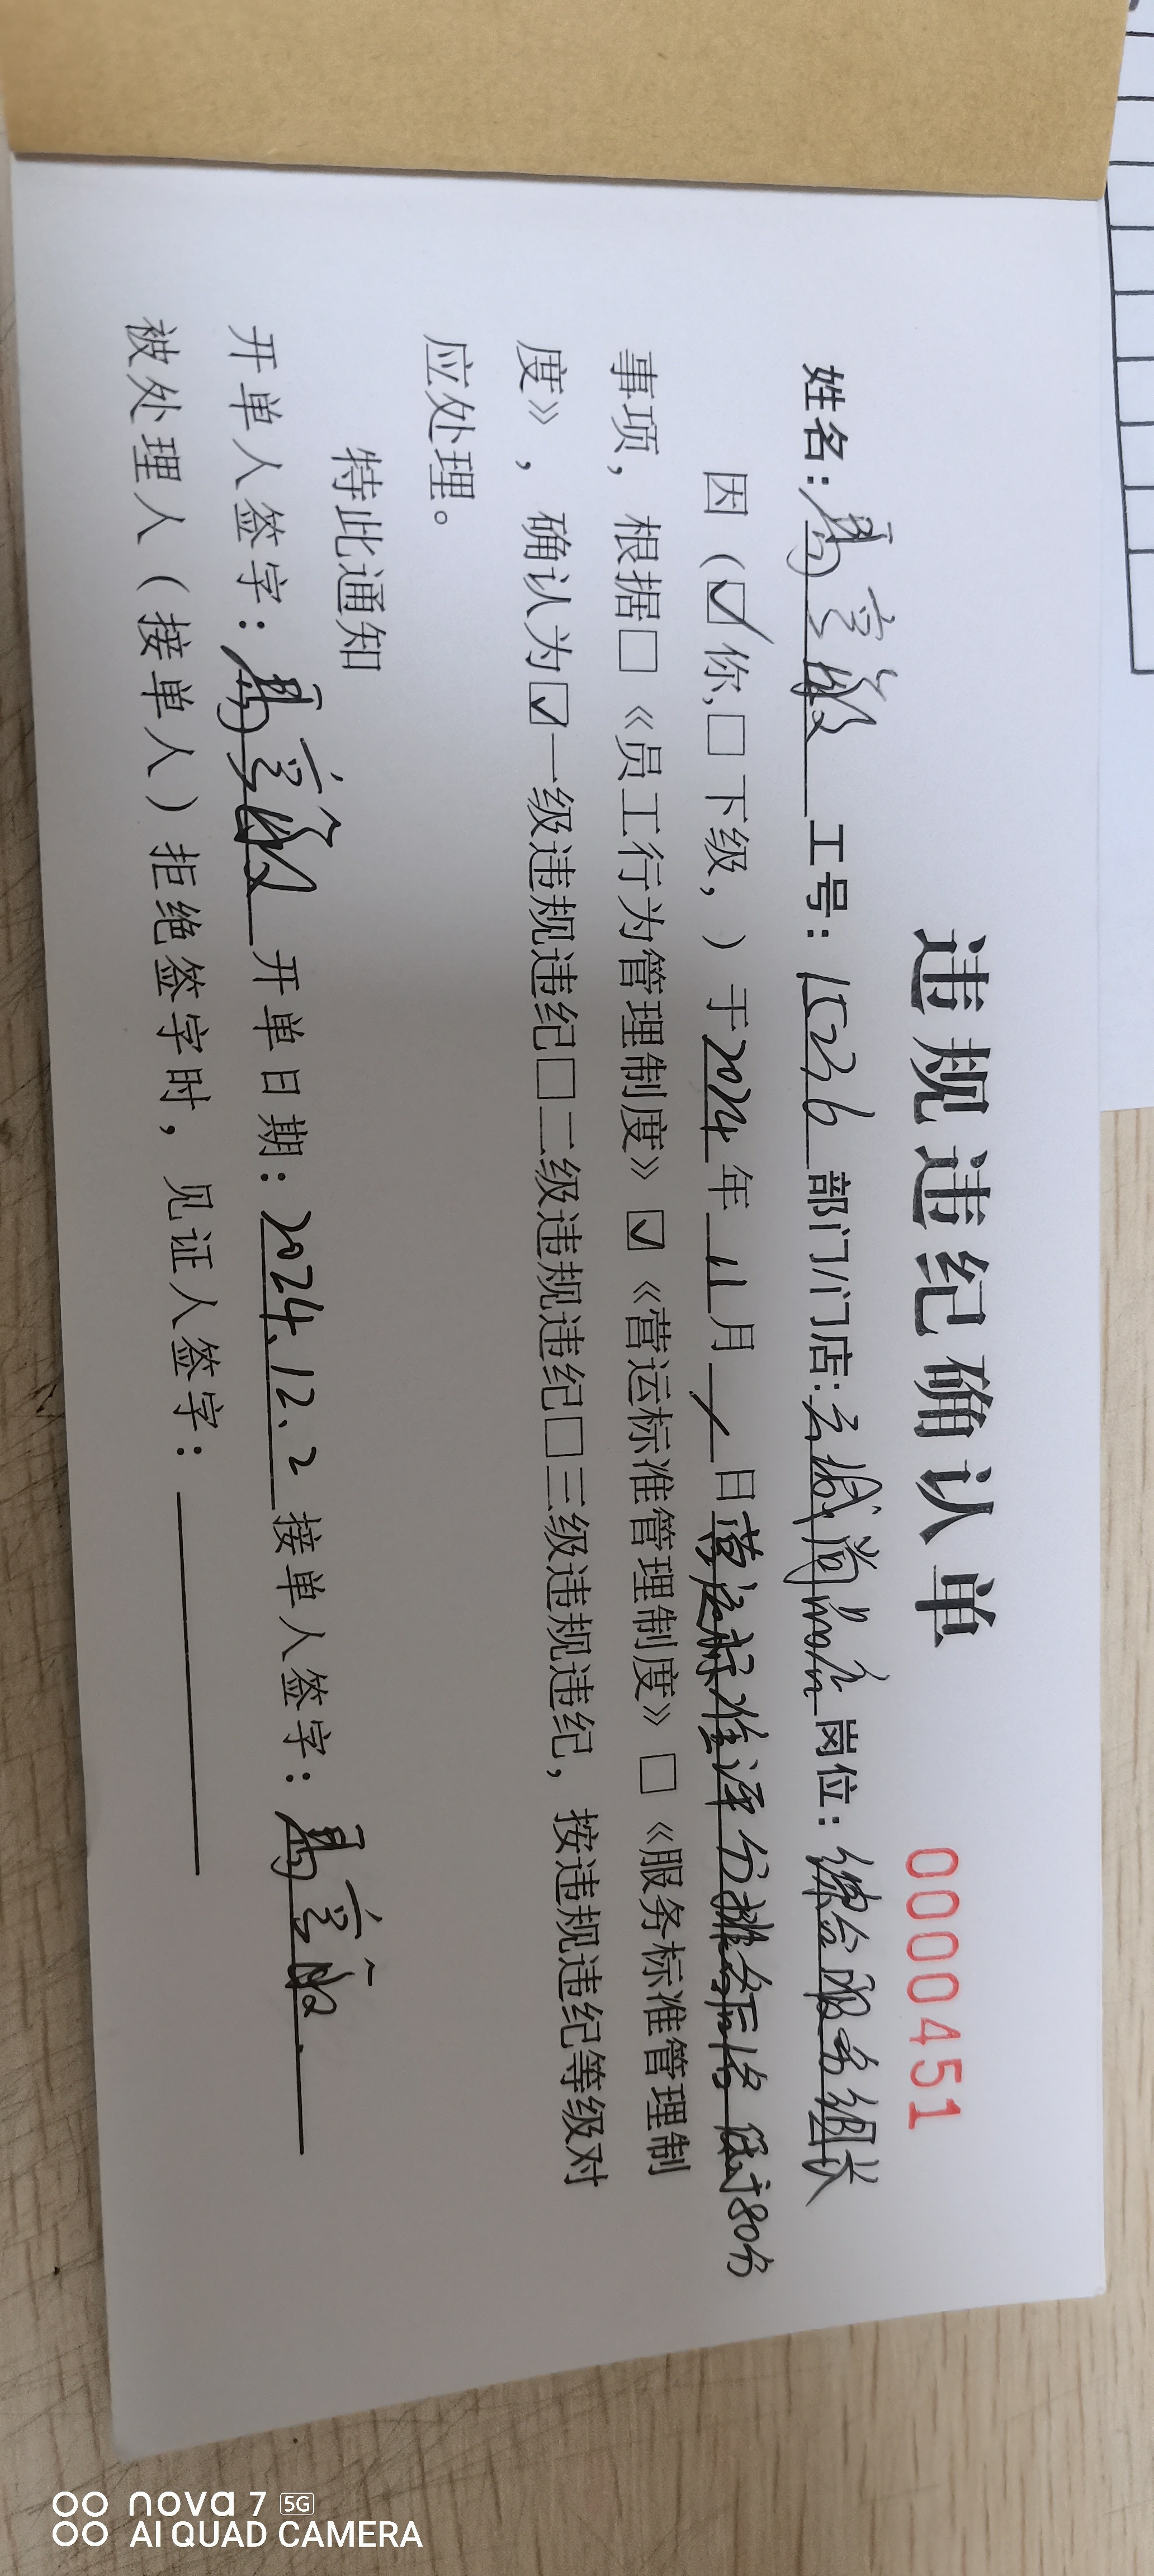 违规违纪确认单
0000451
姓名: 工号: 1536 部门/门店: 岗位: 综合服务组长
因（☑你,□下级，）于2024年11月/日营运标准评分排名后10名 低于80分
事项，根据□《员工行为管理制度》☑《营运标准管理制度》□《服务标准管理制
度》，确认为☑一级违规违纪□二级违规违纪□三级违规违纪，按违规违纪等级对
应处理。
特此通知
开单人签字: 开单日期: 2024.12.2 接单人签字:
被处理人（接单人）拒绝签字时，见证人签字:
nova 7 5G
AI QUAD CAMERA